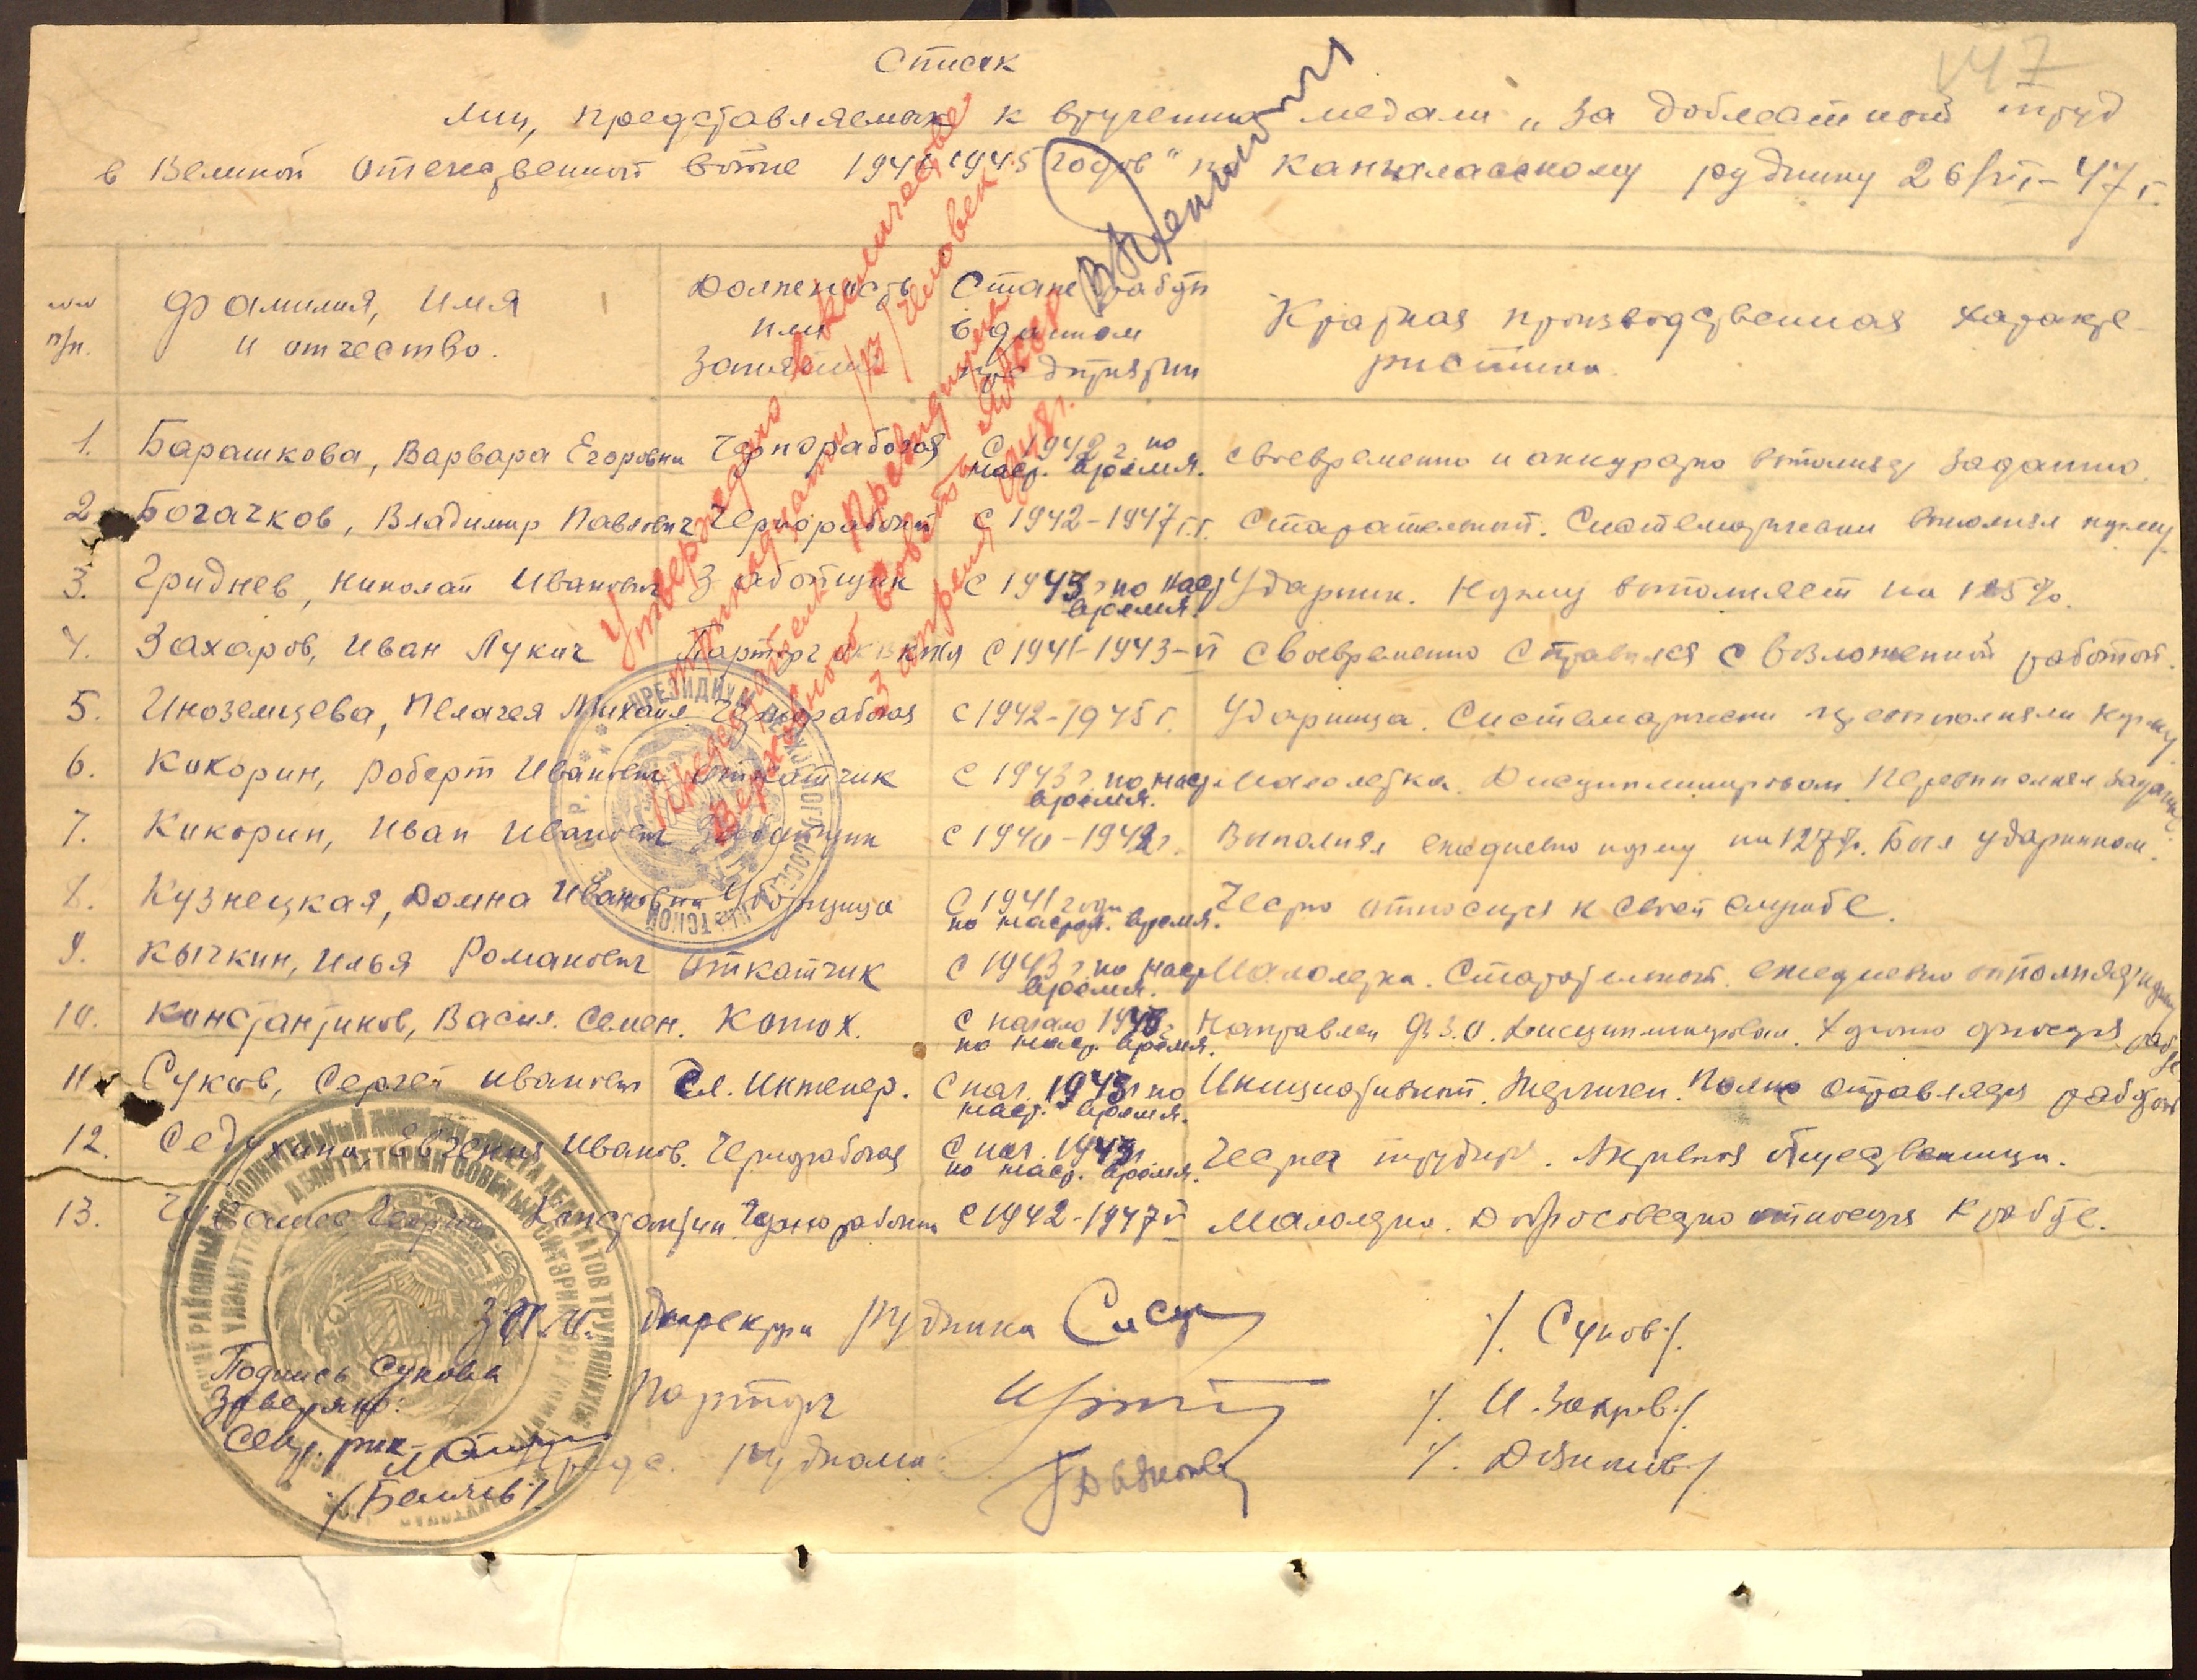 147
Список
лиц, представляемых к вручению медали „За доблестный труд
в Великой Отечественной войне 1941-1945 годов" по Кангаласскому руднику 26/VI-47 г.
№№ п/п.
Фамилия, имя и отчество.
Должность или занятие
Стаж работы в данном предприятии
Краткая производственная характеристика.
1. Барашкова, Варвара Егоровна Чернорабочая с 1942 г. по наст. время. Своевременно и аккуратно выполняет задание.
2. Богачков, Владимир Павлович Чернорабочий с 1942-1947 г.г. Старательный. Систематически выполнял норму
3. Гриднев, Николай Иванович Забойщик с 1943 г по наст время. Ударник. Норму выполняет на 125%.
4. Захаров, Иван Лукич Парторг с 1941-1943- Своевременно справлялся с возложенной работой.
5. Иноземцева, Пелагея Михаил. Чернорабочая с 1942-1945 г. Ударница. Систематически перевыполняла норму
6. Кокорин, Роберт Иванович Откатчик с 1943 г. по наст время. Малолетка. Дисциплинирован. Перевыполнял задание.
7. Кокорин, Иван Иванович Забойщик с 1940-1942 г. Выполнял ежедневно норму на 127%. Был ударником.
8. Кузнецкая, Домна Ивановна Уборщица с 1941 года по настоя. время. Честно относится к своей службе.
9. Кычкин, Илья Романович Откатчик с 1943 г. по наст время. Малолетка. Старательный. Ежедневно выполняет норму
10. Константинов, Васил. Семен. Конюх. с начало 1943 г по наст. время. Направлен Дисциплинирован. Хорошо относится работе
11. Суков, Сергей Иванович Гл. Инженер. С нач. 1943 г по наст. время. Инициативный. Энергичен. Полно справляется работой
12. Седухина, Евгения Иванов. Чернорабочая С нач. 1943 г по наст. время. Честно трудится. Активная общественница.
13. Константин. Чернорабочий с 1942-1947 г Малолетка. Добросовестно относится к работе.
Утверждено в количестве
тринадцати /13/ человек
Председатель Президиума
Верховного Совета ЯАССР
3 апреля 1948 г.
З.М.И. Директора рудника /. Суков./.
Парторг /. И. Захаров./.
Предс. рудкома /. Двзиков./.
Подпись Сукова
Заверяю:
Секр. рик-
/Беляев/.